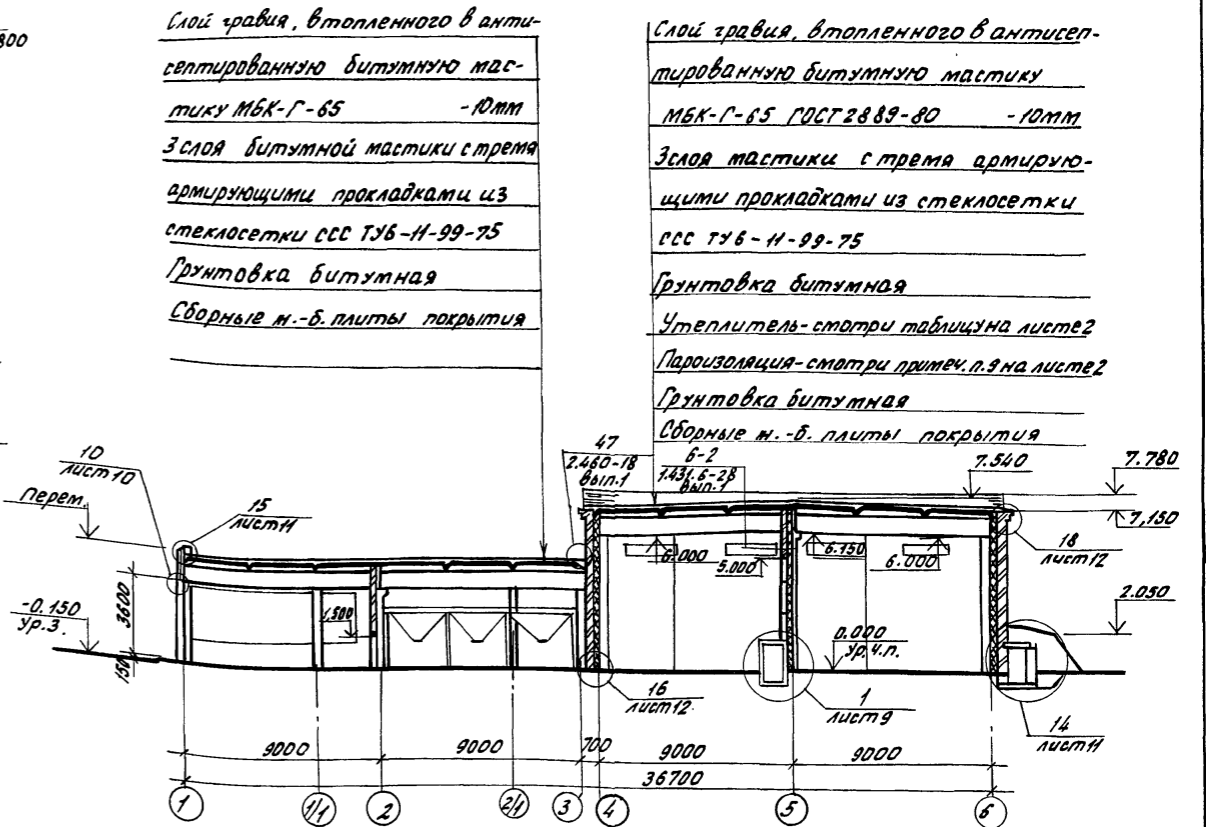 800
Слой гравия, втопленного в анти-
септированную битумную мас-
тику МБК-Г-65 -10мм
3 слоя битумной мастики с тремя
армирующими прокладками из
стеклосетки ССС ТУ6-11-99-75
Грунтовка битумная
Сборные ж.-б. плиты покрытия
Слой гравия, втопленного в антисеп-
тированную битумную мастику
МБК-Г-65 ГОСТ 2889-80 -10мм
3 слоя мастики с тремя армирую-
щими прокладками из стеклосетки
ССС ТУ6-11-99-75
Грунтовка битумная
Утеплитель-смотри таблицу на листе 2
Пароизоляция-смотри примеч. п.9 на листе 2
Грунтовка битумная
Сборные ж.-б. плиты покрытия
10
лист 10
Перем.
15
лист 11
47
2.460-18
вып.1
6-2
1.431.6-28
вып.1
7.540
7.780
7,150
18
лист 12
6.000
5.000
6.150
6.000
2.050
-0.150
Ур.з.
3600
150
1,500
0.000
Ур.ч.п.
16
лист 12
1
лист 9
14
лист 11
9000
9000
700
9000
9000
36700
1
1/1
2
2/1
3
4
5
6